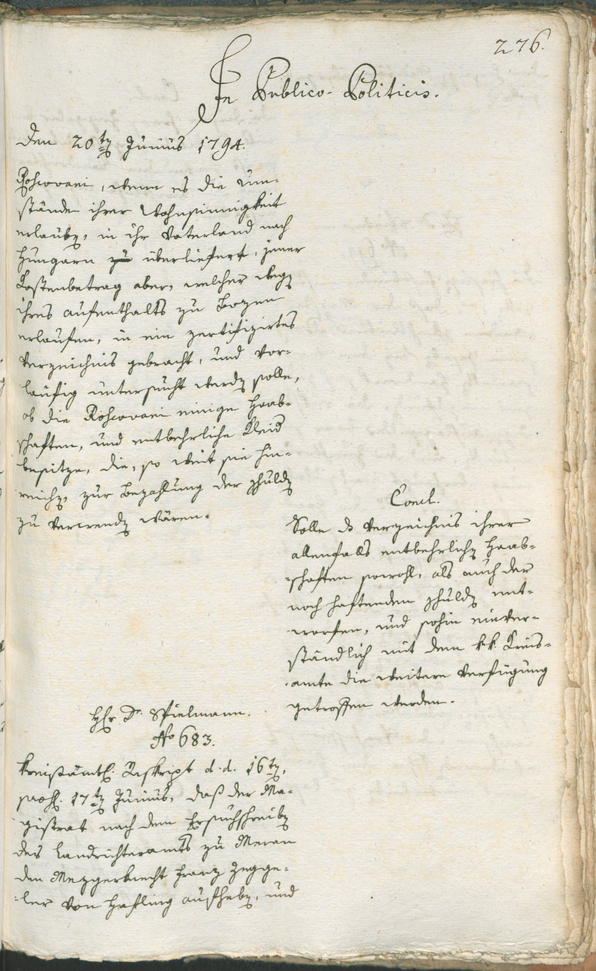 276.
In Publico-Politicis.
Den 20ten Junius 1794.
Roskovani, wenn es die um-
stände ihrer Wahnsinnigkeit
erlauben, in ihr Vaterland nach
Hungarn zu überliefert, jener
Kostenbetrag aber, welcher wegen
ihres aufenthalts zu Bozen
erlaufen, in ein zertifizirtes
Verzeichnis gebracht, und vor-
läufig untersucht werden solle,
ob die Roskovani einige Haab-
schaften, und entbehrliche Kleid
besitze, die, so weit sie hin-
reichen, zur Bezahlung der schulden
zu verwenden wären.
Concl.
Solle das Verzeichnis ihrer
allenfalls entbehrlichen Haab-
schaften sowohl, als auch der
noch haftenden schulden ent-
worfen, und sohin einver-
ständlich mit dem kk Kreis-
amte die weitere Verfügung
getroffen werden.
Hr. Dr. Spielmann.
No 683.
Kreisämtl. Reskript d.d. 16ten,
präs. 17ten Junius, daß der Ma-
gistrat nach dem Ersuchschreiben
des Landrichteramts zu Meran
den Mezgerknecht Franz Zegge-
ler von Hafling ausheben, und